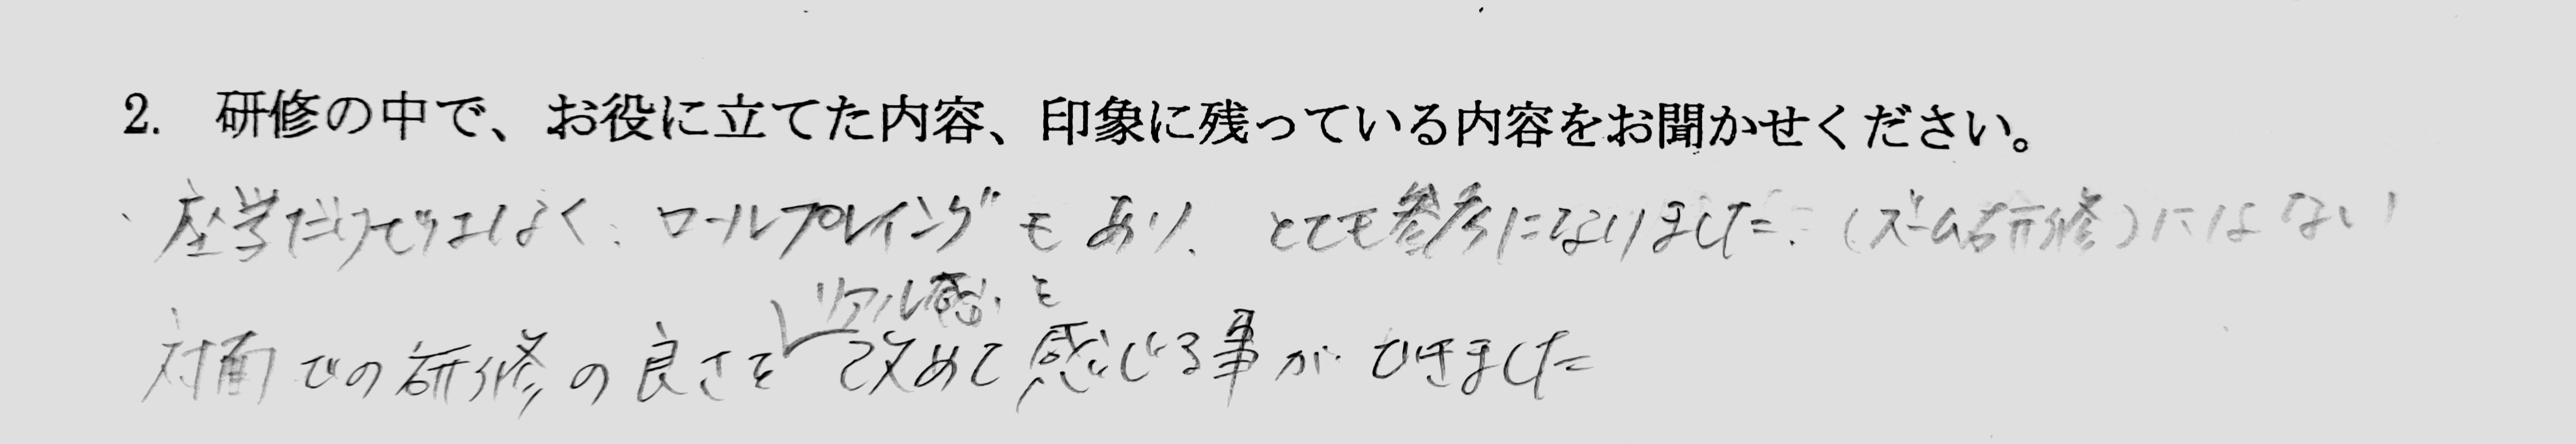 2. 研修の中で、お役に立てた内容、印象に残っている内容をお聞かせください。
、座学だけではなく、ロールプレイングもあり、とても参考になりました。(ズーム研修)にはない
リアル感を
対面での研修の良さを改めて感じる事ができました